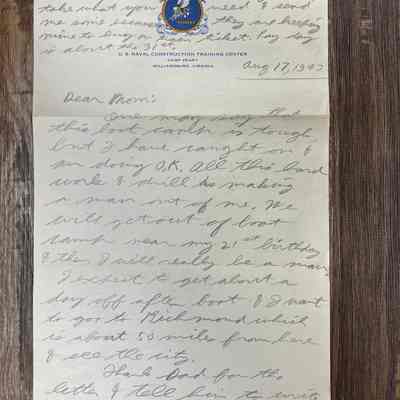 take what you need & send
me some because they are keeping
mine to buy a train ticket. Pay day
is about the 31st.
U.S. NAVAL CONSTRUCTION TRAINING CENTER
CAMP PEARY
WILLIAMSBURG, VIRGINIA
Aug 17, 1943
Dear Mom:
One may say that
this boot camp is tough
but I have caught on &
am doing O.K. All this hard
work & drill is making
a man out of me. We
will get out of boot
camp near my 21st birthday
& then I will really be a man.
I expect to get about a
day off after boot & I want
to go to Richmond which
is about 50 miles from here
& see the city.
Thank Dad for the
letter & tell him to write